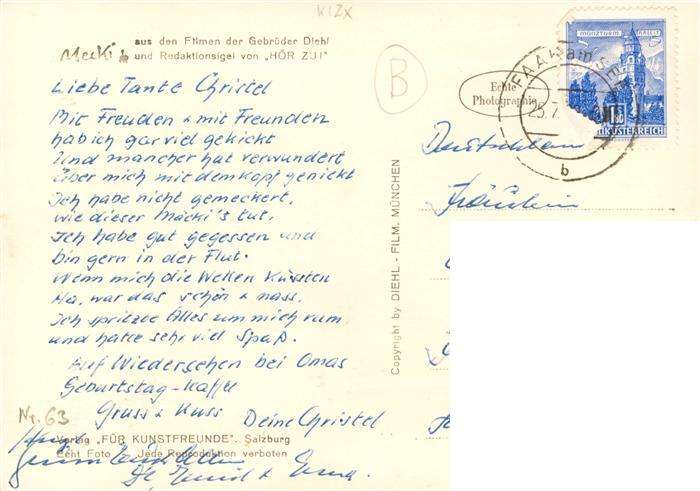 KIZX
aus den Filmen der Gebrüder Diehl
Mecki
und Redaktionsigel von „HÖR ZU!"
B
Echte
Photographie
FAAK am
25.7.
b
MÜNZTURM
1.80
REP. ÖSTERREICH
Liebe Tante Christel
Mit Freuden & mit Freunden
hab ich gar viel gekickt
Und mancher hat verwundert
Über mich mit dem Kopf genickt
Ich habe nicht gemeckert,
wie dieser Mäcki's tut.
Ich habe gut gegessen und
bin gern in der Flut.
Wenn mich die Wellen küssten
Ha, war das schön & nass.
Ich spritze Alles um mich rum
und hatte sehr viel Spaß.
Auf Wiedersehen bei Omas
Geburtstag-Kaffee
Gruss & Kuss
Deine Christel
Nr. 63
Verlag „FÜR KUNSTFREUNDE". Salzburg
Echt Foto - Jede Reproduktion verboten
Copyright by DIEHL - FILM. MÜNCHEN
Deutschland
Fräulein